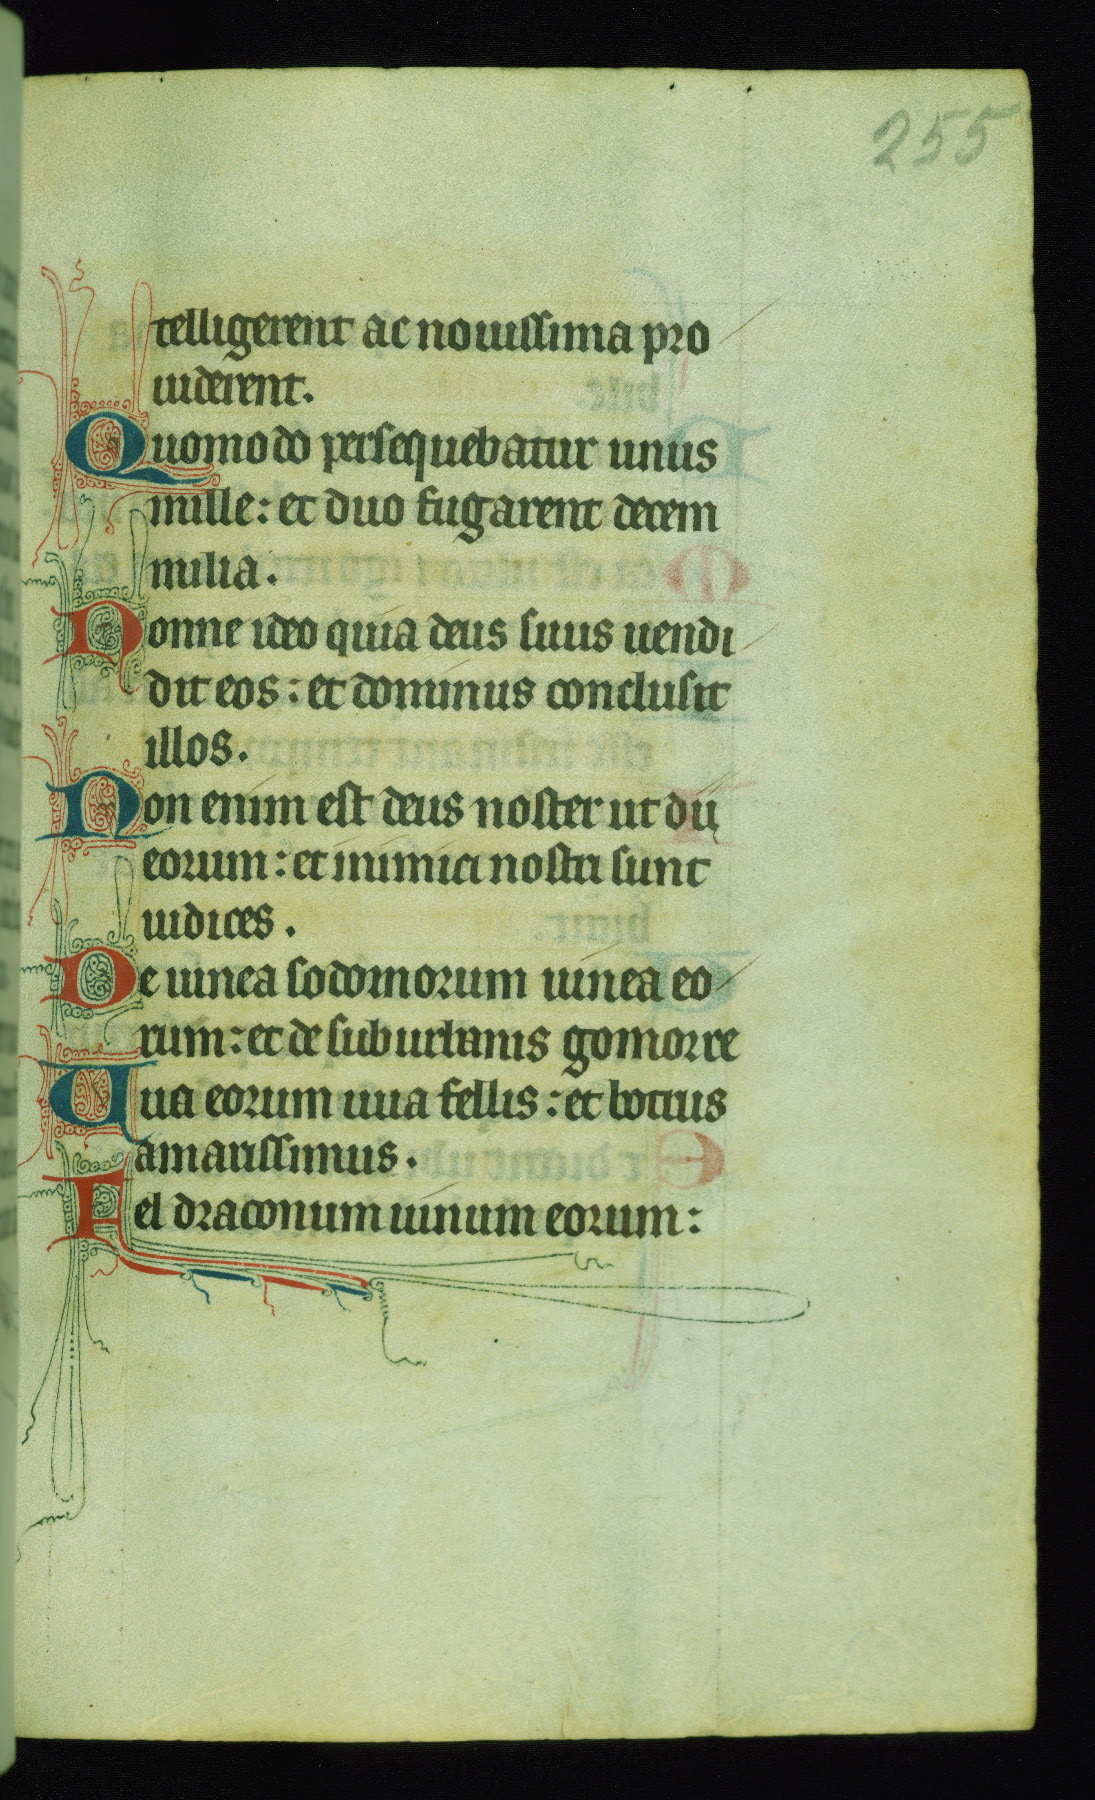 255
telligerent ac nouissima pro
uiderent.
Quomodo persequebatur unus
mille: et duo fugarent decem
milia.
Nonne ideo quia deus suus uendi
dit eos: et dominus conclusit
illos.
Non enim est deus noster ut dii
eorum: et inimici nostri sunt
iudices.
De uinea sodomorum uinea eo
rum: et de suburbanis gomorre
Uua eorum uua fellis: et botrus
amarissimus.
Fel draconum uinum eorum: